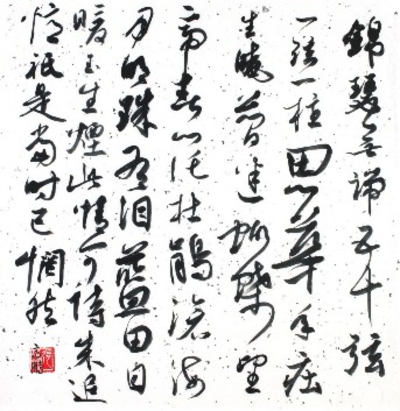 錦瑟無端五十弦
一弦一柱思華年莊
生曉夢迷蝴蝶望
帝春心托杜鵑滄海
月明珠有淚藍田日
暖玉生煙此情可待成追
憶祇是當時已惘然